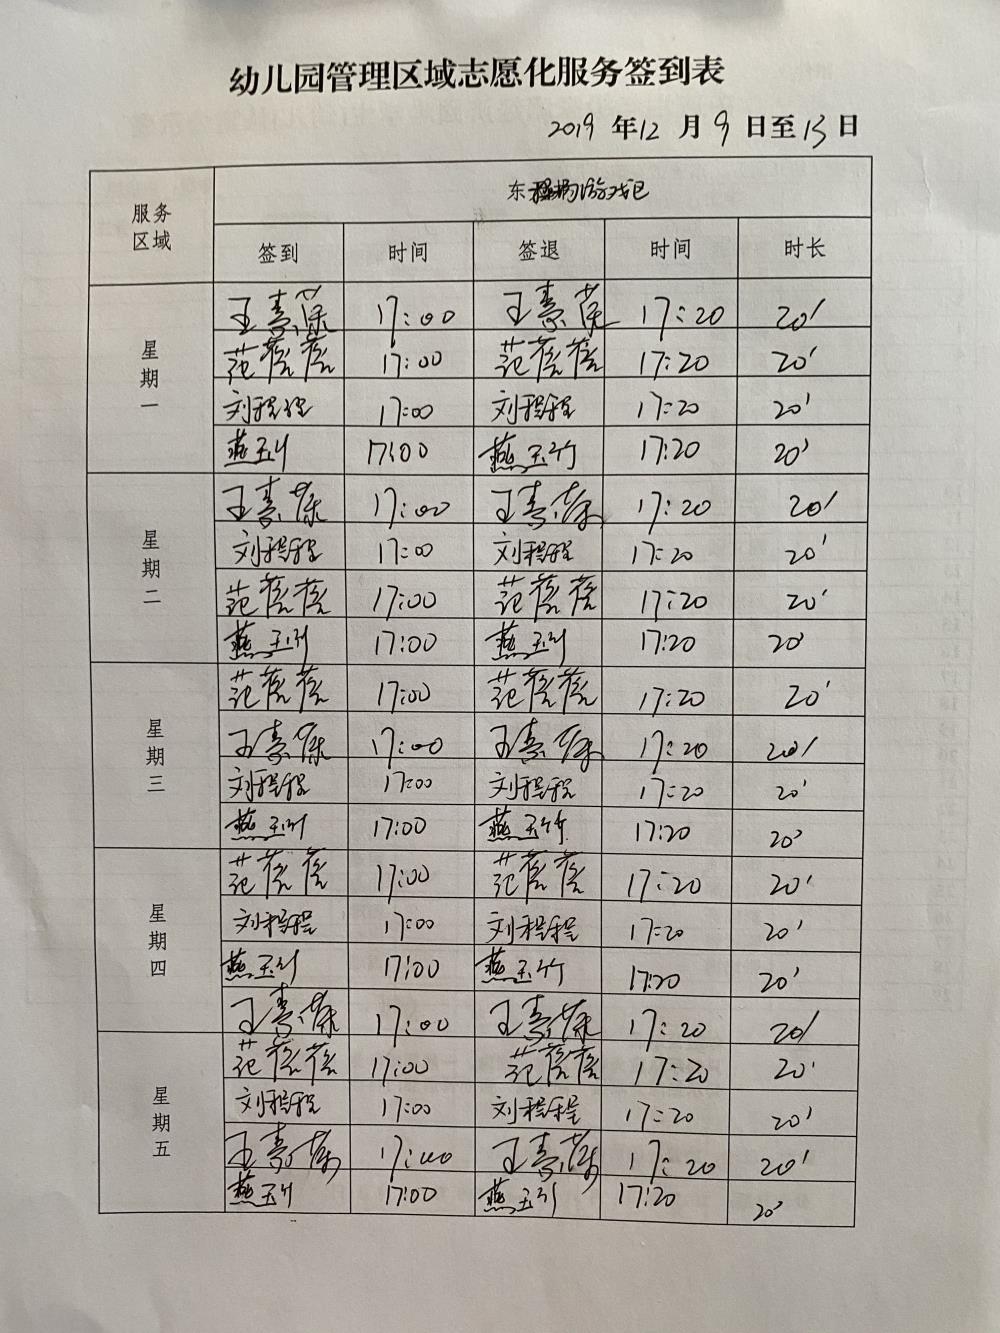 幼儿园管理区域志愿化服务签到表
2019 年 12 月 9 日至 13 日
服务区域 东 游戏区
签到 时间 签退 时间 时长
星期一
王 17:00 王 17:20 20'
范蓉蓉 17:00 范蓉蓉 17:20 20'
刘程程 17:00 刘程程 17:20 20'
燕玉竹 17:00 燕玉竹 17:20 20'
星期二
王 17:00 王 17:20 20'
刘程程 17:00 刘程程 17:20 20'
范蓉蓉 17:00 范蓉蓉 17:20 20'
燕玉竹 17:00 燕玉竹 17:20 20'
星期三
范蓉蓉 17:00 范蓉蓉 17:20 20'
王 17:00 王 17:20 20'
刘程程 17:00 刘程程 17:20 20'
燕玉竹 17:00 燕玉竹 17:20 20'
星期四
范蓉蓉 17:00 范蓉蓉 17:20 20'
刘程程 17:00 刘程程 17:20 20'
燕玉竹 17:00 燕玉竹 17:20 20'
王 17:00 王 17:20 20'
星期五
范蓉蓉 17:00 范蓉蓉 17:20 20'
刘程程 17:00 刘程程 17:20 20'
王 17:00 王 17:20 20'
燕玉竹 17:00 燕玉竹 17:20 20'